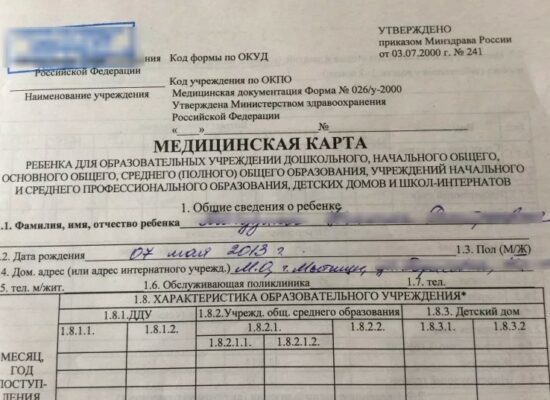 УТВЕРЖДЕНО
приказом Минздрава России
от 03.07.2000 г. № 241
Код формы по ОКУД
Российской Федерации
Код учреждения по ОКПО
Наименование учреждения
Медицинская документация Форма № 026/у-2000
Утверждена Министерством здравоохранения
Российской Федерации
«___»__________ №
МЕДИЦИНСКАЯ КАРТА
РЕБЕНКА ДЛЯ ОБРАЗОВАТЕЛЬНЫХ УЧРЕЖДЕНИЙ ДОШКОЛЬНОГО, НАЧАЛЬНОГО ОБЩЕГО,
ОСНОВНОГО ОБЩЕГО, СРЕДНЕГО (ПОЛНОГО) ОБЩЕГО ОБРАЗОВАНИЯ, УЧРЕЖДЕНИЙ НАЧАЛЬНОГО
И СРЕДНЕГО ПРОФЕССИОНАЛЬНОГО ОБРАЗОВАНИЯ, ДЕТСКИХ ДОМОВ И ШКОЛ-ИНТЕРНАТОВ
1. Общие сведения о ребенке
.1. Фамилия, имя, отчество ребенка
.2. Дата рождения 07 мая 2013 г 1.3. Пол (М/Ж)
4. Дом. адрес (или адрес интернатного учрежд.) М.О, г. Мытищи,
5. тел. м/жит. 1.6. Обслуживающая поликлиника 1.7. тел.
1.8. ХАРАКТЕРИСТИКА ОБРАЗОВАТЕЛЬНОГО УЧРЕЖДЕНИЯ*
1.8.1.ДДУ 1.8.2.Учрежд. общ. среднего образования 1.8.3. Детский дом
1.8.1.1. 1.8.1.2. 1.8.2.1. 1.8.2.2. 1.8.3.1. 1.8.3.2
1.8.2.1.1. 1.8.2.1.2.
МЕСЯЦ,
ГОД
ПОСТУП-
ЛЕНИЯ